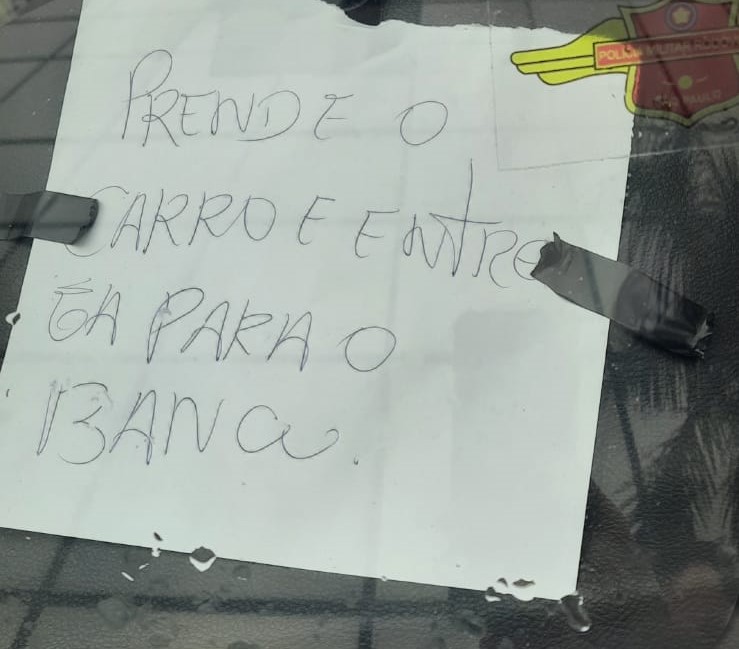 PRENDE O
CARRO E ENTRE
GA PARA O
BANCO.
POLÍCIA MILITAR
SÃO PAULO